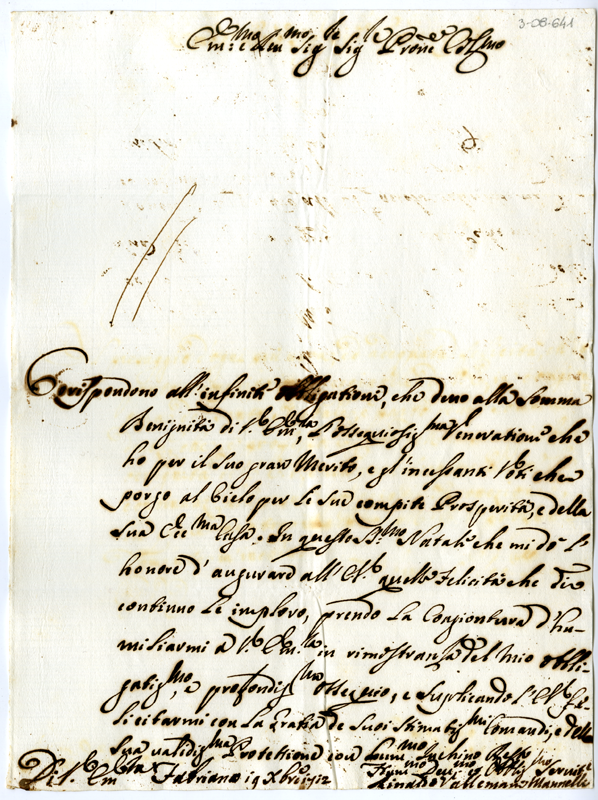 3-08-641
Em:mo e Rmo Sig.re Sig.re Prone Col.mo
Corrispondono all'infinite obligationi, che devo alla somma
Benignità di V.ra Em.za, l'ossequiosis.ma Venerationi che
ho per il suo gran Merito, e gl'incessanti Voti che
porgo al Cielo per le sue compite Prosperità, e della
sua Ecc.ma Casa. In queste S.me Natali che mi dò l'
honore d'augurare all'E.V. quelle Felicità che di
continuo Le imploro, prendo La Congiontura d'hu-
miliarmi à V.ra Em.za in rimostranza del mio obbli-
gatis.mo, e profondis.mo ossequio, e suplicando l'E.V. fe-
licitarmi con La gratia de suoi stimatis.mi Comandi, e della
sua validis.ma Protettione con
Di V.ra Em.za Fabriano 19 Xbre 1712
Servit.e
Rinaldo